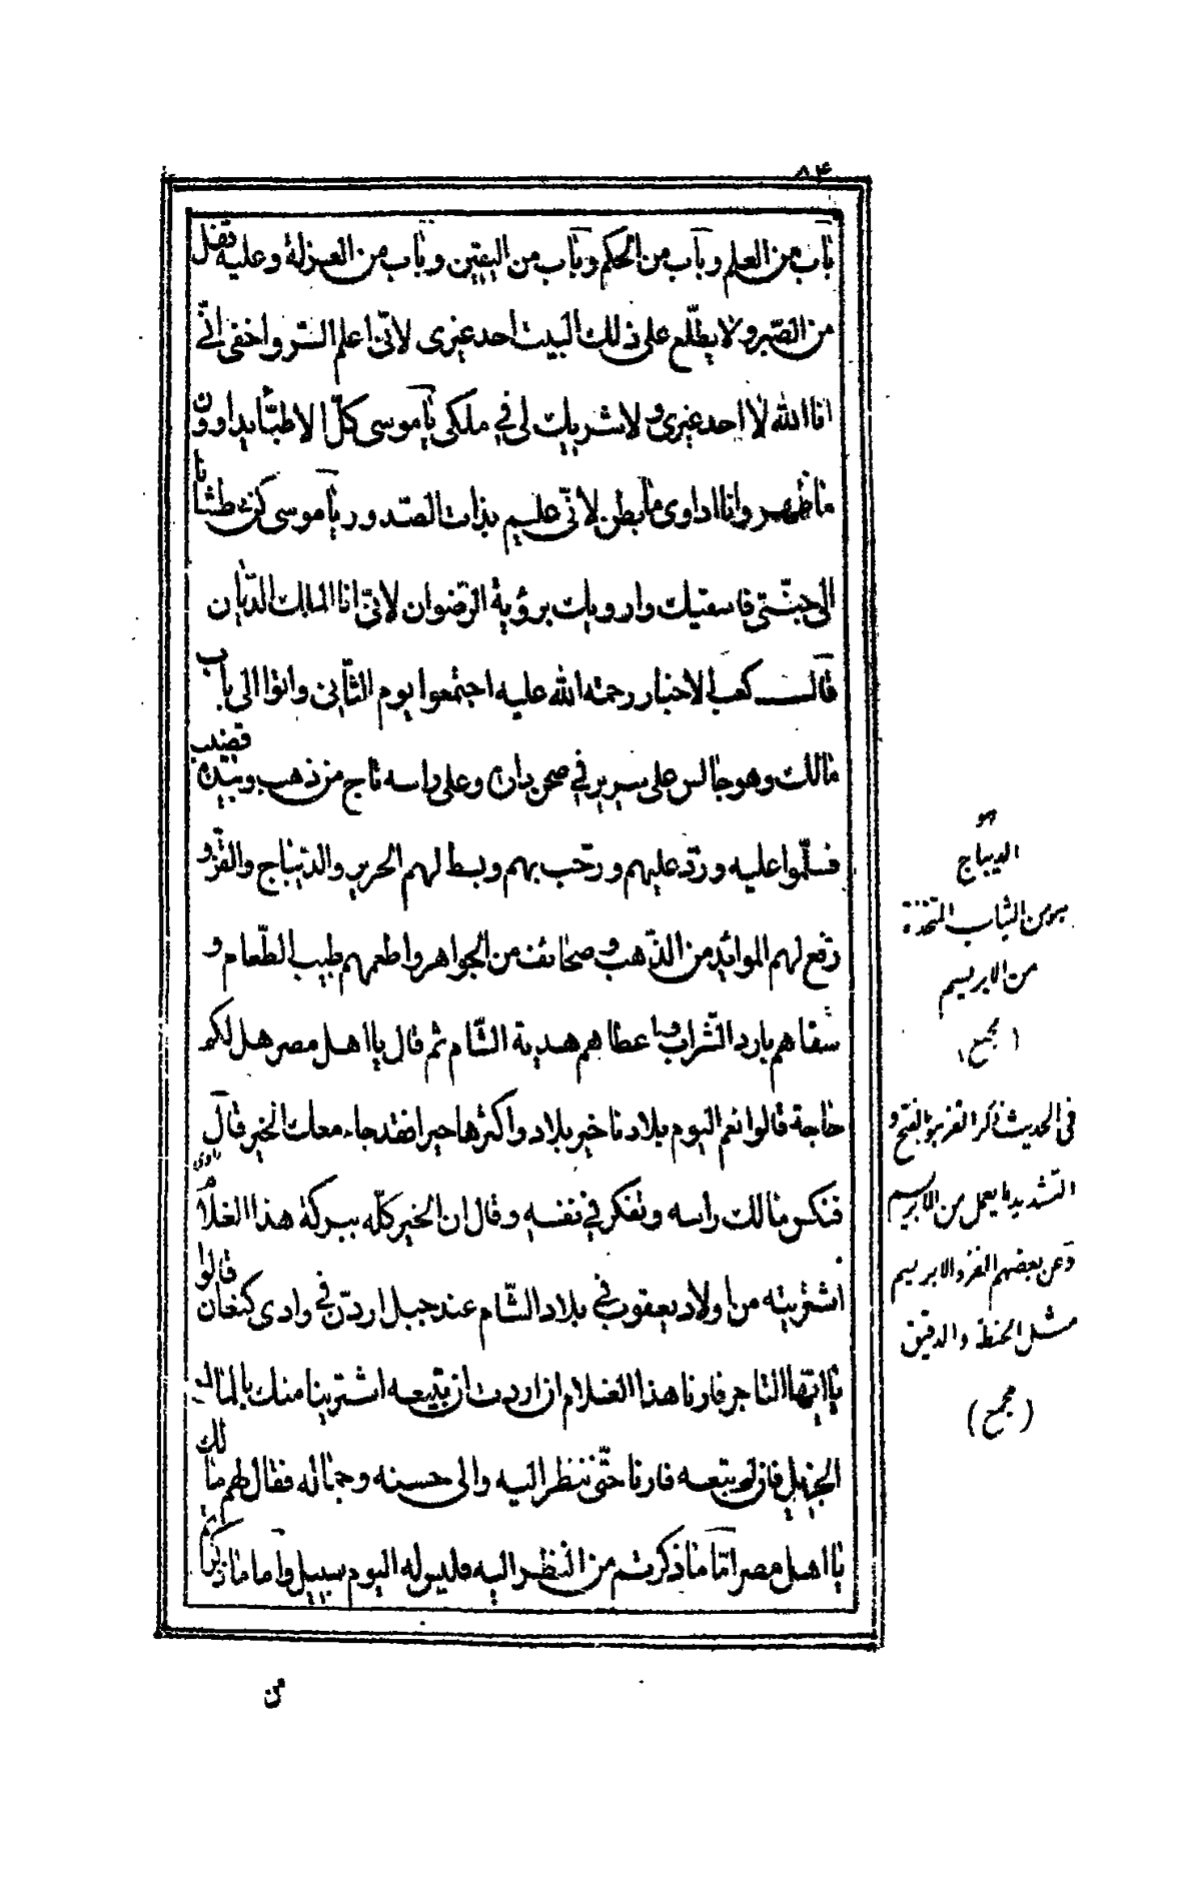 ۸۴
باب من العلم وباب من الحكم وباب من اليقين وباب من العزلة وعليه قفل
من الصّبر ولا يطّلع على ذلك البيت احد غيرى لانّى اعلم السّر واخفى انّى
انا الله لا احد غيرى ولا شريك لى فى ملكى يا موسى كلّ الاطبّاء يداوون
ما ظهر وانا اداوى ما بطن لانّى عليم بذات الصّدور يا موسى كن عطشانا
الى جنّتى فاسقيك وارويك برؤية الرّضوان لانّى انا الملك الديّان
قال كعب الاحبار رحمة الله عليه اجتمعوا يوم الثّانى واتوا الى باب
مالك وهو جالس على سرير فى صحن داره وعلى راسه تاج من ذهب وبيده قضيب
فسلّموا عليه وردّ عليهم ورحّب بهم وبسط لهم الحرير والديباج والقزّ و
رفع لهم الموائد من الذّهب وصحائف من الجواهر واطعمهم طيب الطّعام و
سقاهم بارد الشّراب واعطاهم هدية الشّام ثم قال يا اهل مصر هل لكم
حاجة قالوا نعم اليوم بلادنا خير بلاد واكثرها خيرا فقد جاء معك الخير قال
راوى
فنكس مالك راسه وتفكر فى نفسه وقال ان الخير كلّه ببركة هذا الغلام
اشتريته من اولاد يعقوب فى بلاد الشّام عند جبل اردنّ فى وادى كنعان قالوا
يا ايّها التاجر فارنا هذا الغلام ان اردت ان تبيعه اشترينا منك بالمال
الجزيل فان لم تبعه فارنا حتّى ننظر اليه والى حسنه وجماله فقال لهم مالك
يا اهل مصر امّا ما ذكرتم من النظر اليه فليس له اليوم سبيل واما ما ذكرتم
من
هو
الديباج
هو من الثياب المتخذة
من الابريسم
(مجمع)
فى الحديث ذكر القز بالفتح و
التشديد ما يعمل من الابريسم
وعن بعضهم القز والابريسم
مثل الحنطة والدقيق
(مجمع)